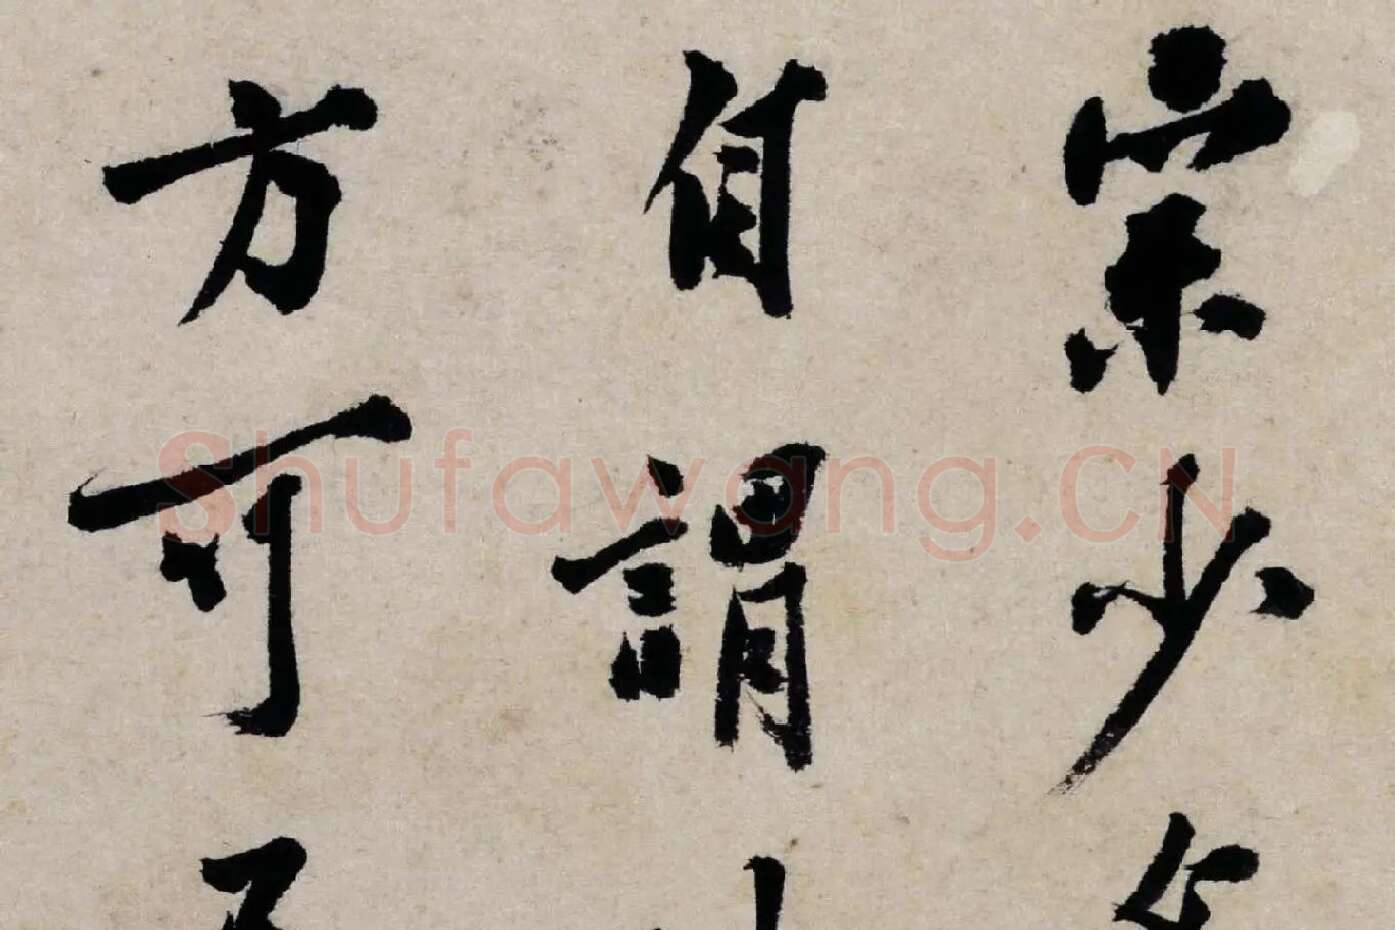 宗少
自謂
方可
Shufawang.CN